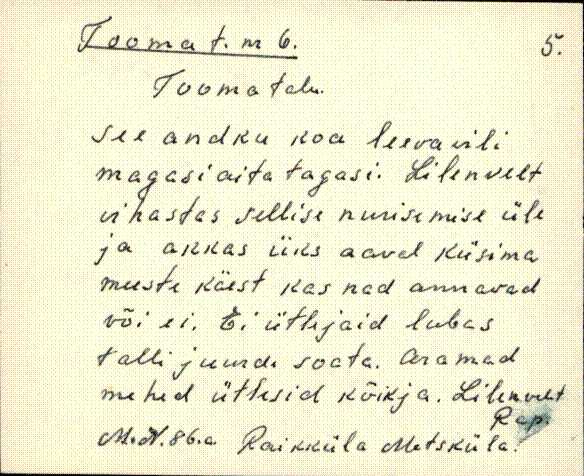 Tooma t. nr 6. 5.
Tooma talu.
See andku koa leevavili
magasiaita tagasi. Lilenvelt
vihastas sellise nurisemise üle
ja akkas üks aaval küsima
meeste käest kas nad annavad
või ei. Ei ütlejaid lubas
talli juurde soata. Aramad
mehed ütlesid kõik ja. Lilenvelt
Rap.
M.N. 86.a Raikküla Metsküla.